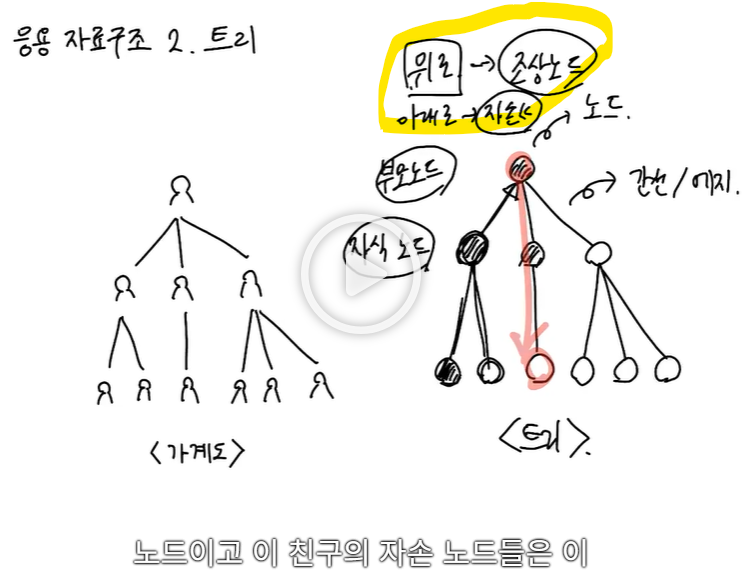 응용 자료구조 2. 트리
위로 → 조상노드
아래로 → 자손〃
노드.
부모노드
간선/에지.
자식 노드
<가계도>
<트리>.
노드이고 이 친구의 자손 노드들은 이